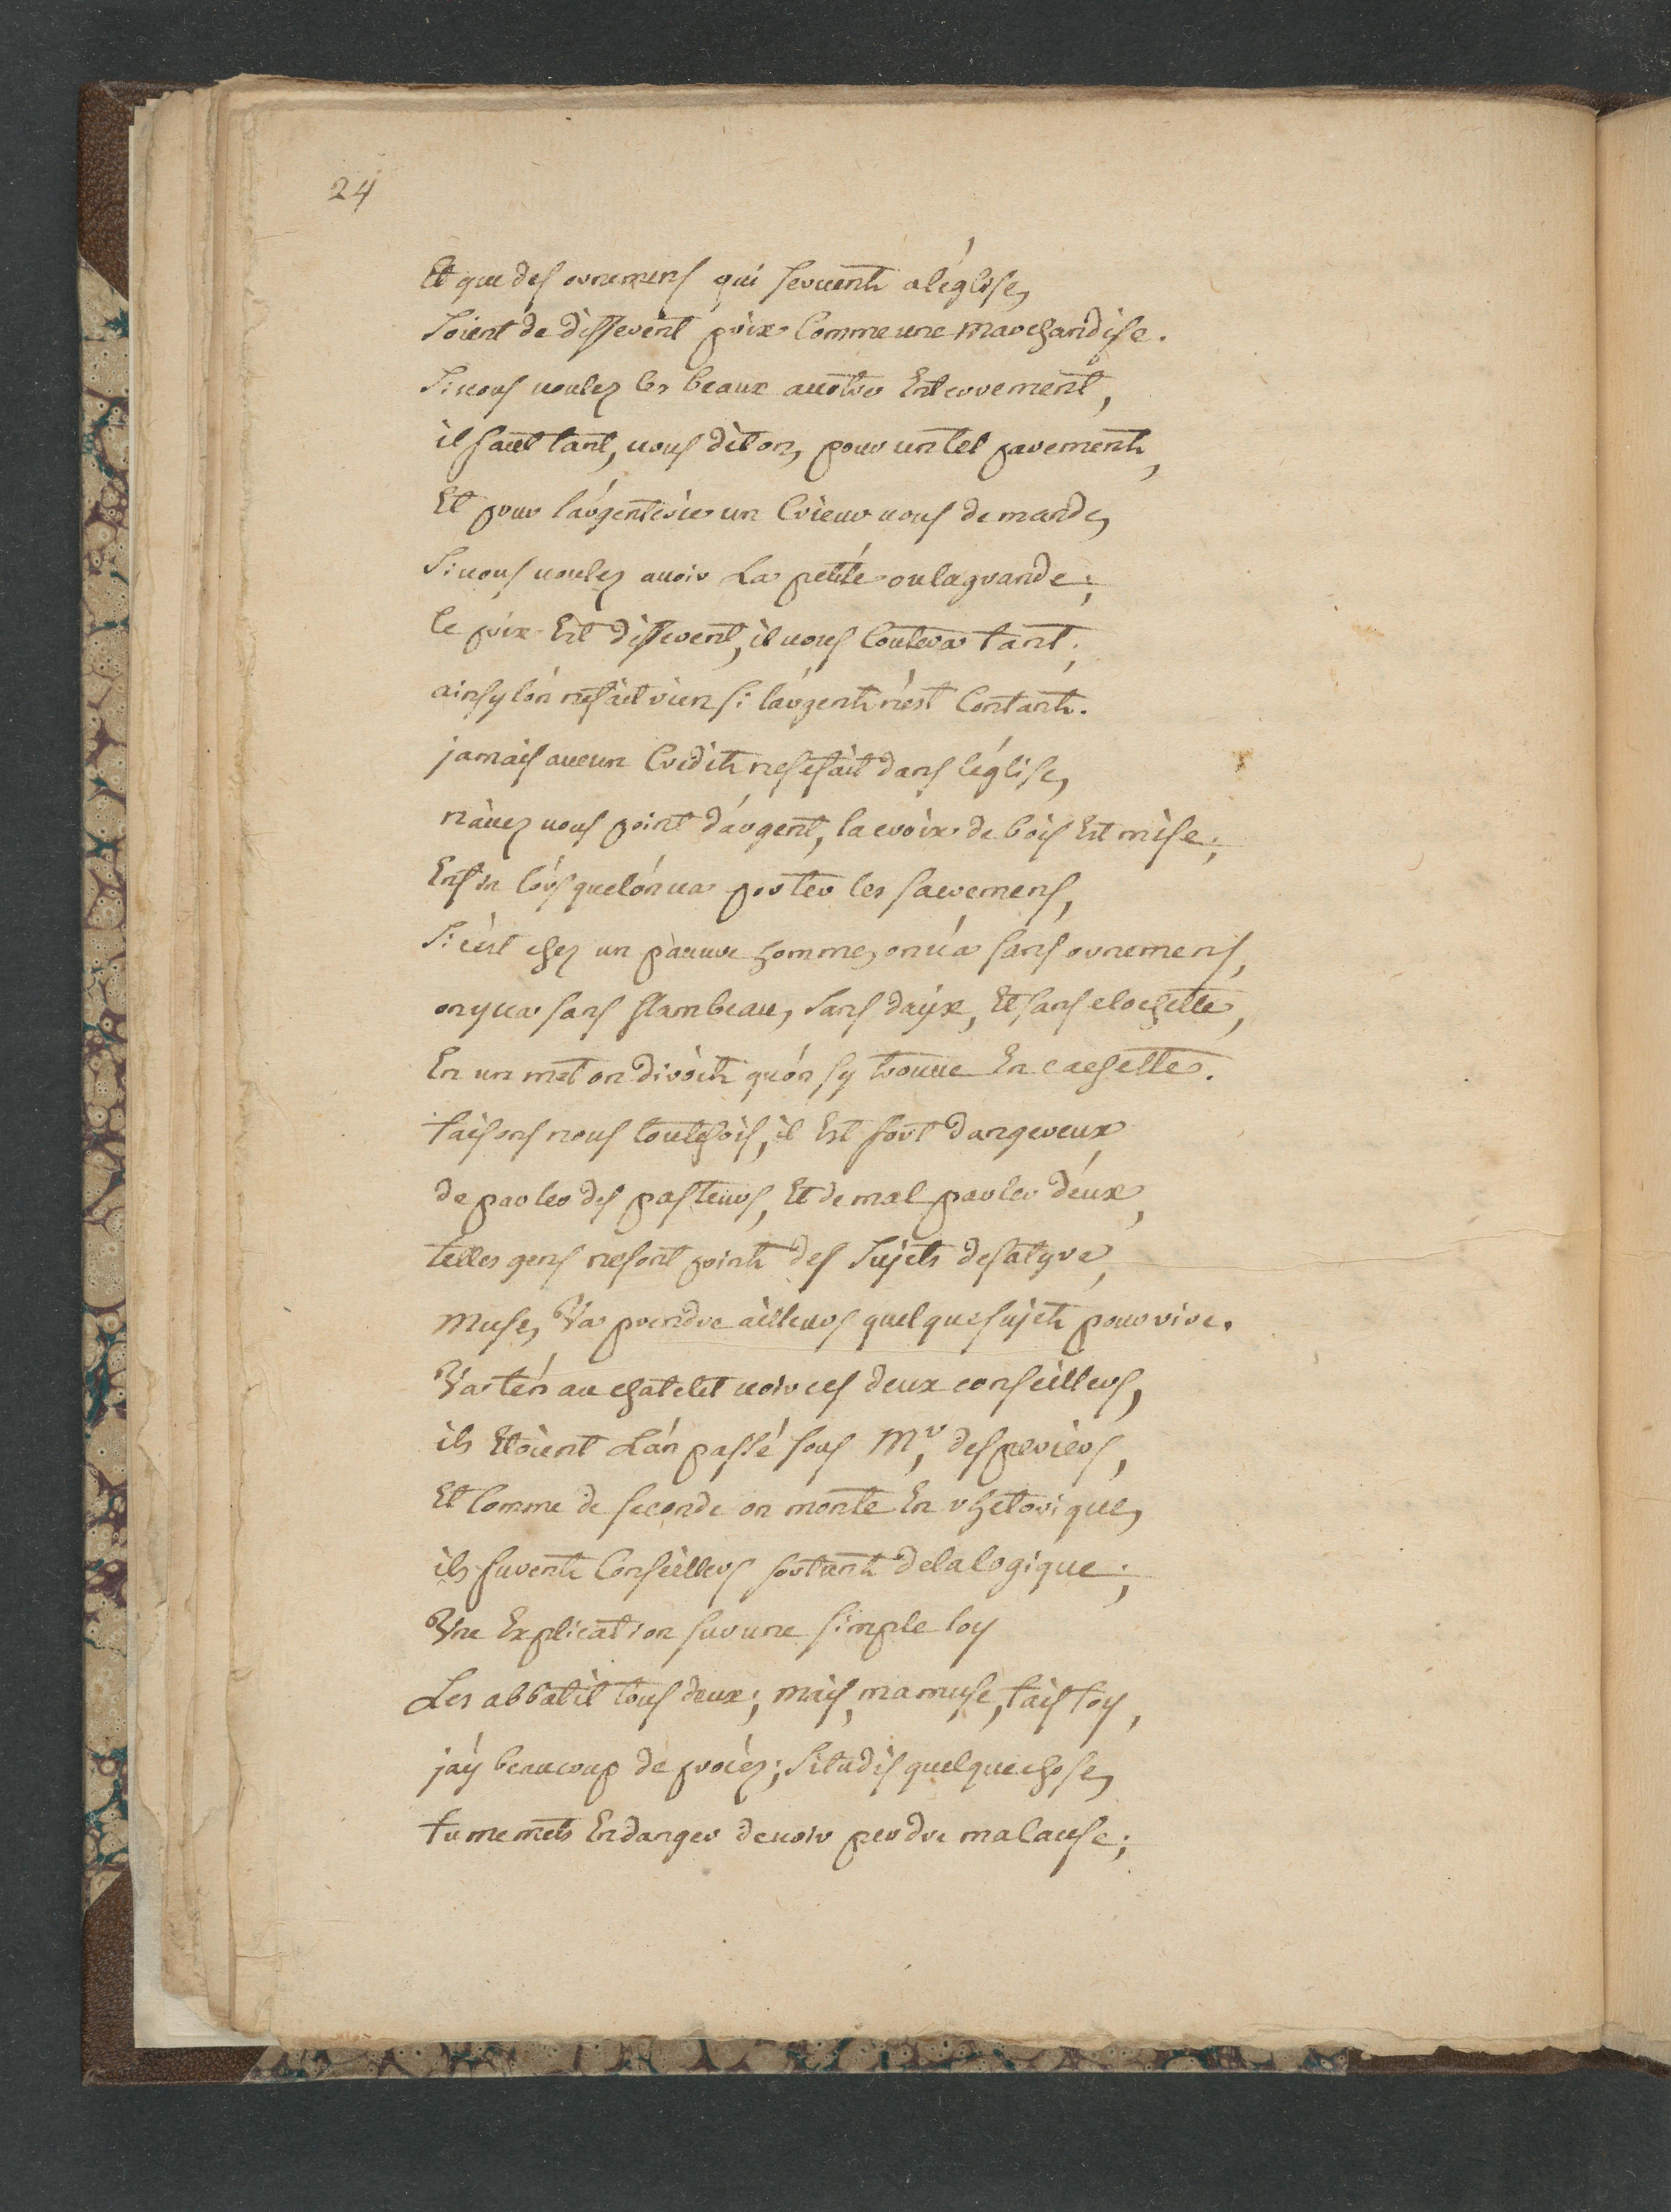 24
Et que des ornemens qui servent a l'églíse,
Soient de different prix Comme une marchandise.
Si vous voulez les beaux a votre Enterrement,
il faut tant, vous dit on, pour un tel parement,
Et pour l'argenterie un Crieur vous demande,
Si vous voulez avoir La petite ou la grande;
le prix Est different, il vous Coutera tant;
ainsy l'on ne fait rien si l'argent n'est Contant.
jamais aucun Credit ne se fait dans l'église,
n'avez vous point d'argent, la croix de bois Est mise;
Enfin lors que l'on va porter les sacremens,
Si c'est chez un pauvre homme, on va sans ornemens,
on y va sans flambeau, sans daix, Et sans clochette,
En un mot on diroit qu'on sy trouve En cachette.
taisons nous toutefois, il Est fort dangereux
de parler des pasteurs, Et de mal parler d'eux,
telles gens ne sont point des Sujets de satyre,
Muse, Va prendre ailleurs quelque sujet pour rire.
Va t'en au chatelet voir ces deux conseillers,
ils Etoient L'an passé sous Mr, desperiers,
Et Comme de seconde on monte En rhetorique,
ils furent Conseillers sortant de la logique;
Vne Explication sur une simple loy
Les abbatit tous deux; mais, ma muse, tais toy,
j'ay beaucoup de procez; Si tu dis quelque chose,
tu me mets En danger de voir perdre ma Cause;